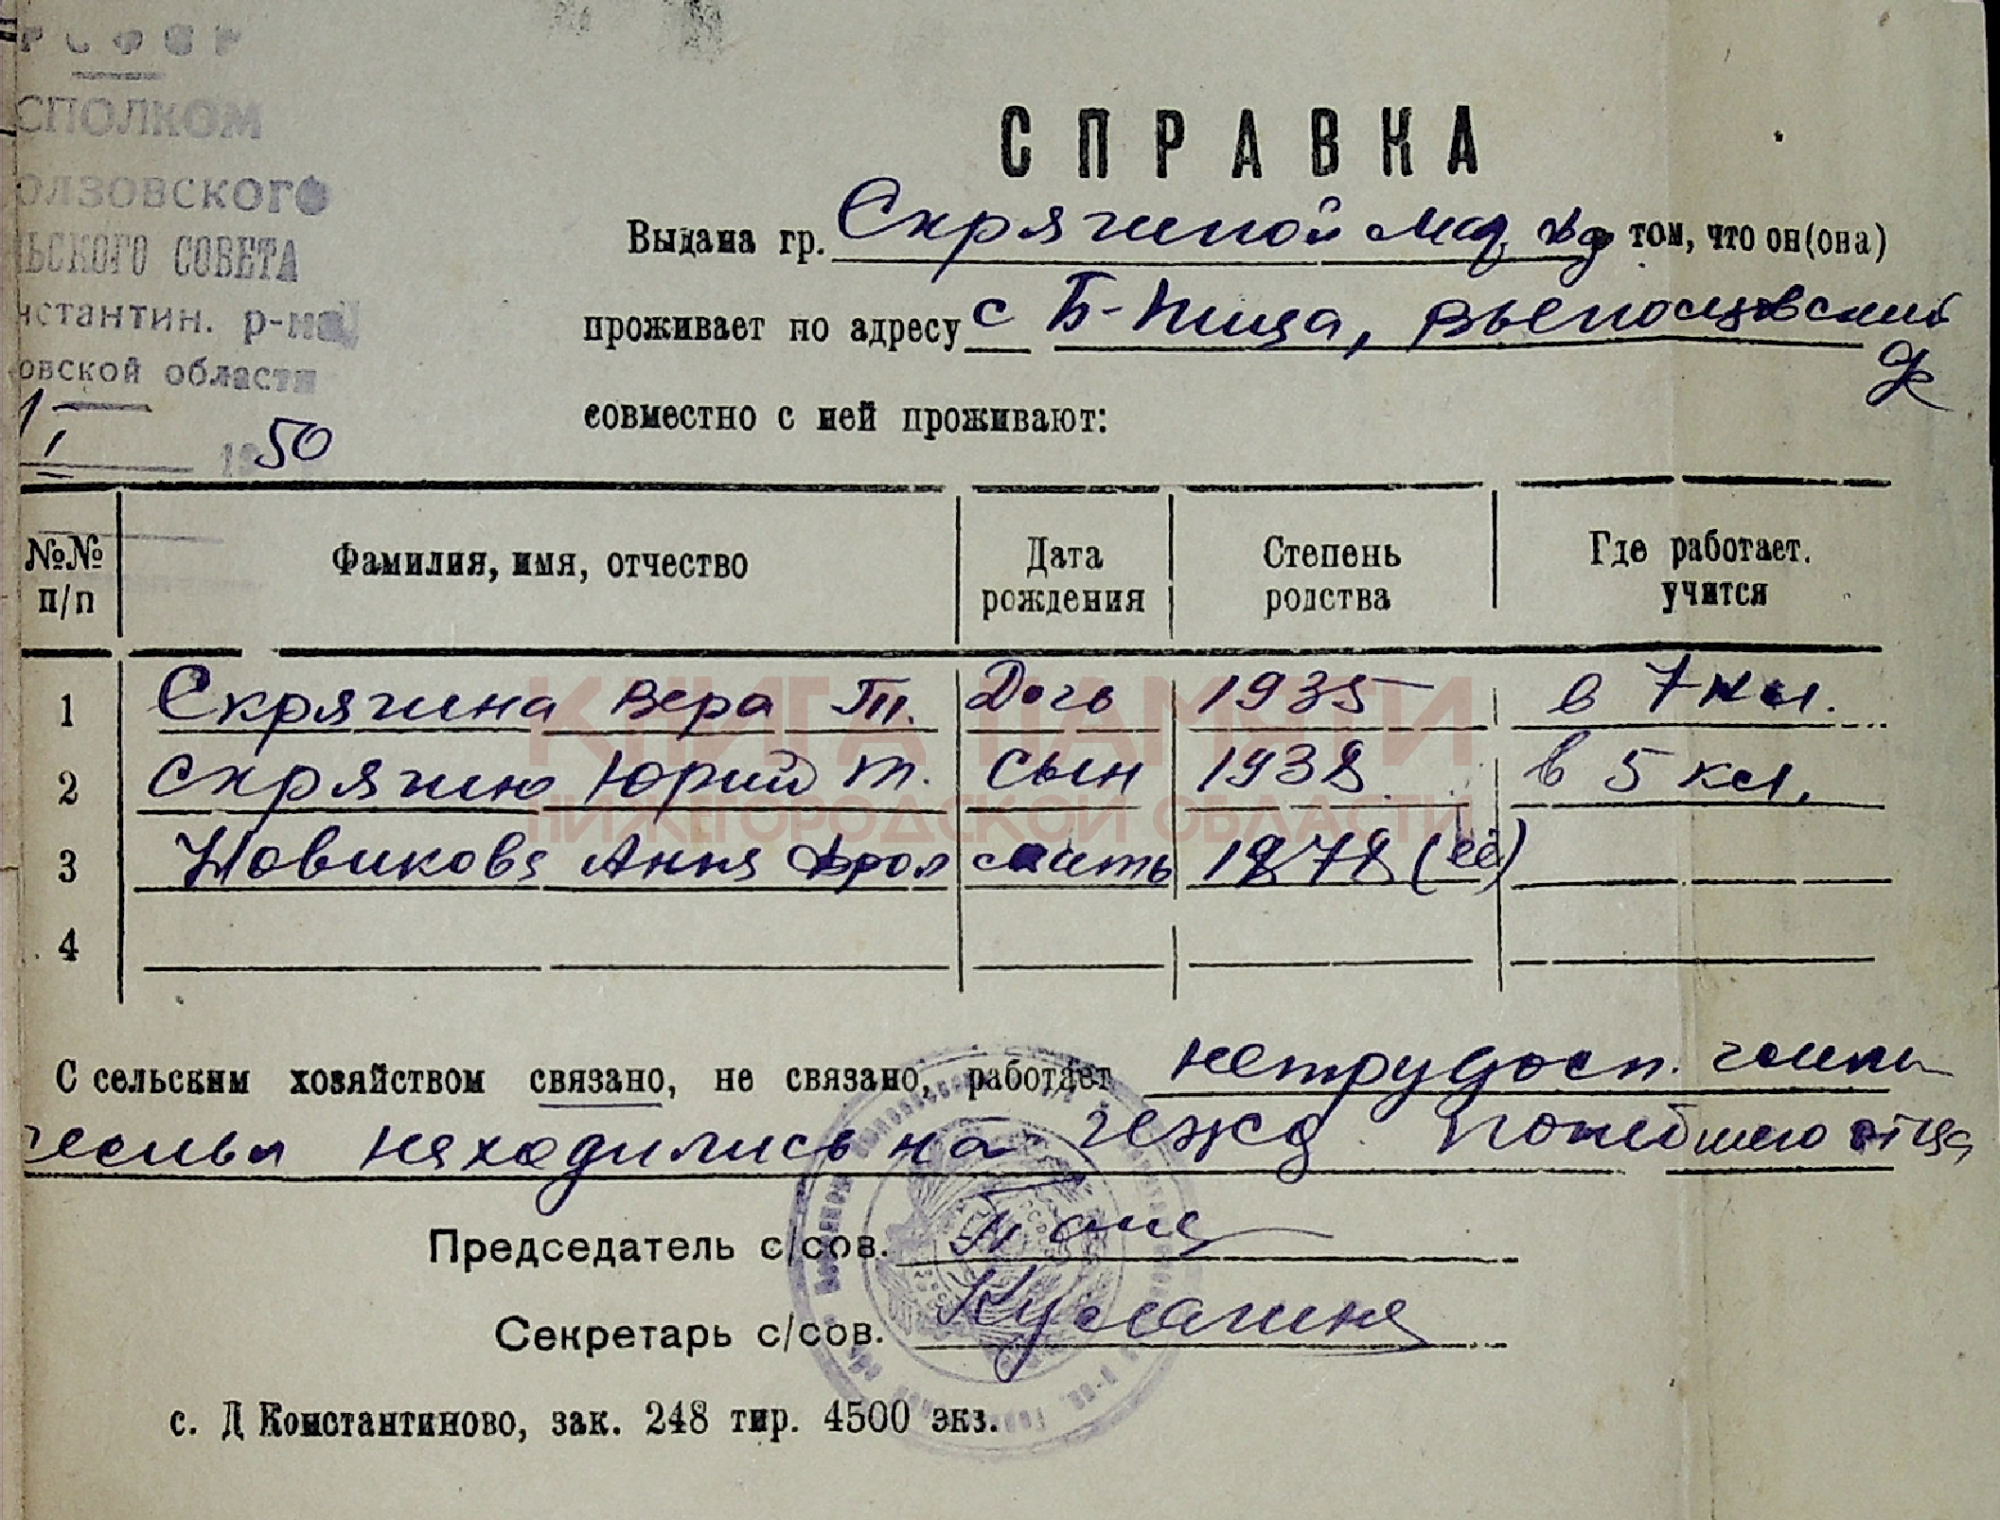 РСФСР
СПОЛКОМ
ОЛЗОВСКОГО
ЛЬСКОГО СОВЕТА
нстантин. р-на
овской области
I 1950
СПРАВКА
Выдана гр. Скрягиной том, что он(она)
проживает по адресу с Б-Пица,
совместно с ней проживают:
№№ п/п Фамилия, имя, отчество Дата рождения Степень родства Где работает. учится
1 Скрягина Вера Т. Дочь 1935 в 7 кл.
2 Скрягин Юрий Т. сын 1938 в 5 кл.
3 Новикова Анна Фрол мать 1878 (её)
4
КНИГА ПАМЯТИ
НИЖЕГОРОДСКОЙ ОБЛАСТИ
С сельским хозяйством связано, не связано, работает нетрудосп. члены
семьи находились на ижд. погибшего отца
Председатель с/сов.
Секретарь с/сов. Кулагина
с. Д Константиново, зак. 248 тир. 4500 экз.